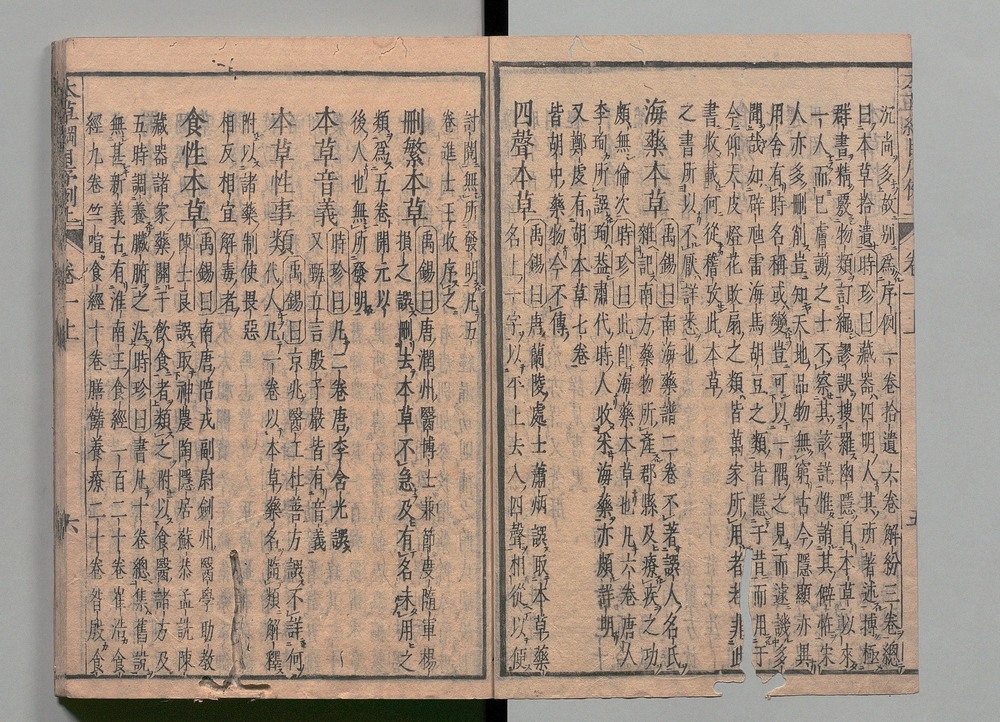 沉尚多故別爲序例一卷拾遺六卷解紛三卷總
曰本草拾遺時珍曰藏器四明人其所著述博極
群書精覈物類訂繩謬誤搜羅幽隱自本草以來
一人而已膚謭之士不察其該詳惟誚其僻怪宋
人亦多刪削豈知天地品物無窮古今隱顯亦異
用舍有時名稱或變豈可以一隅之見而遽譏多
聞哉如辟虺雷海馬胡豆之類皆隱于昔而用于
今仰天皮燈花敗扇之類皆萬家所用者若非此
書收載何從稽攷此本草
之書所以不厭詳悉也
海藥本草禹錫曰南海藥譜二卷不著譔人名氏
雜記南方藥物所產郡縣及療疾之功
頗無倫次時珍曰此卽海藥本草也凡六卷唐人
李珣所譔珣葢肅代時人收采海藥亦頗詳明
又鄭虔有胡本草七卷
皆胡中藥物今不傳
四聲本草禹錫曰唐蘭陵處士蕭炳譔取本草藥
名上一字以平上去入四聲相從以便
討閱無所發明凡五
卷進士王收序之
刪繁本草禹錫曰唐潤州醫博士兼節度隨軍楊
損之譔刪去本草不急及有名未用之
類爲五卷開元以
後人也無所發明
本草音義時珍曰凡二卷唐李含光譔
又甄立言殷子嚴皆有音義
本草性事類禹錫曰京兆醫工杜善方譔不詳何
代人凡一卷以本草藥名隨類解釋
附以諸藥制使畏惡
相反相宜解毒者
食性本草禹錫曰南唐陪戎副尉劍州醫學助教
陳士良譔取神農陶隱居蘇恭孟詵陳
藏器諸家藥關于飲食者類之附以食醫諸方及
五時調養臟腑之法時珍曰書凡十卷總集舊說
無甚新義古有淮南王食經一百二十卷崔浩食
經九卷竺暄食經十卷膳饈養療二十卷昝殷食
卷一上
六